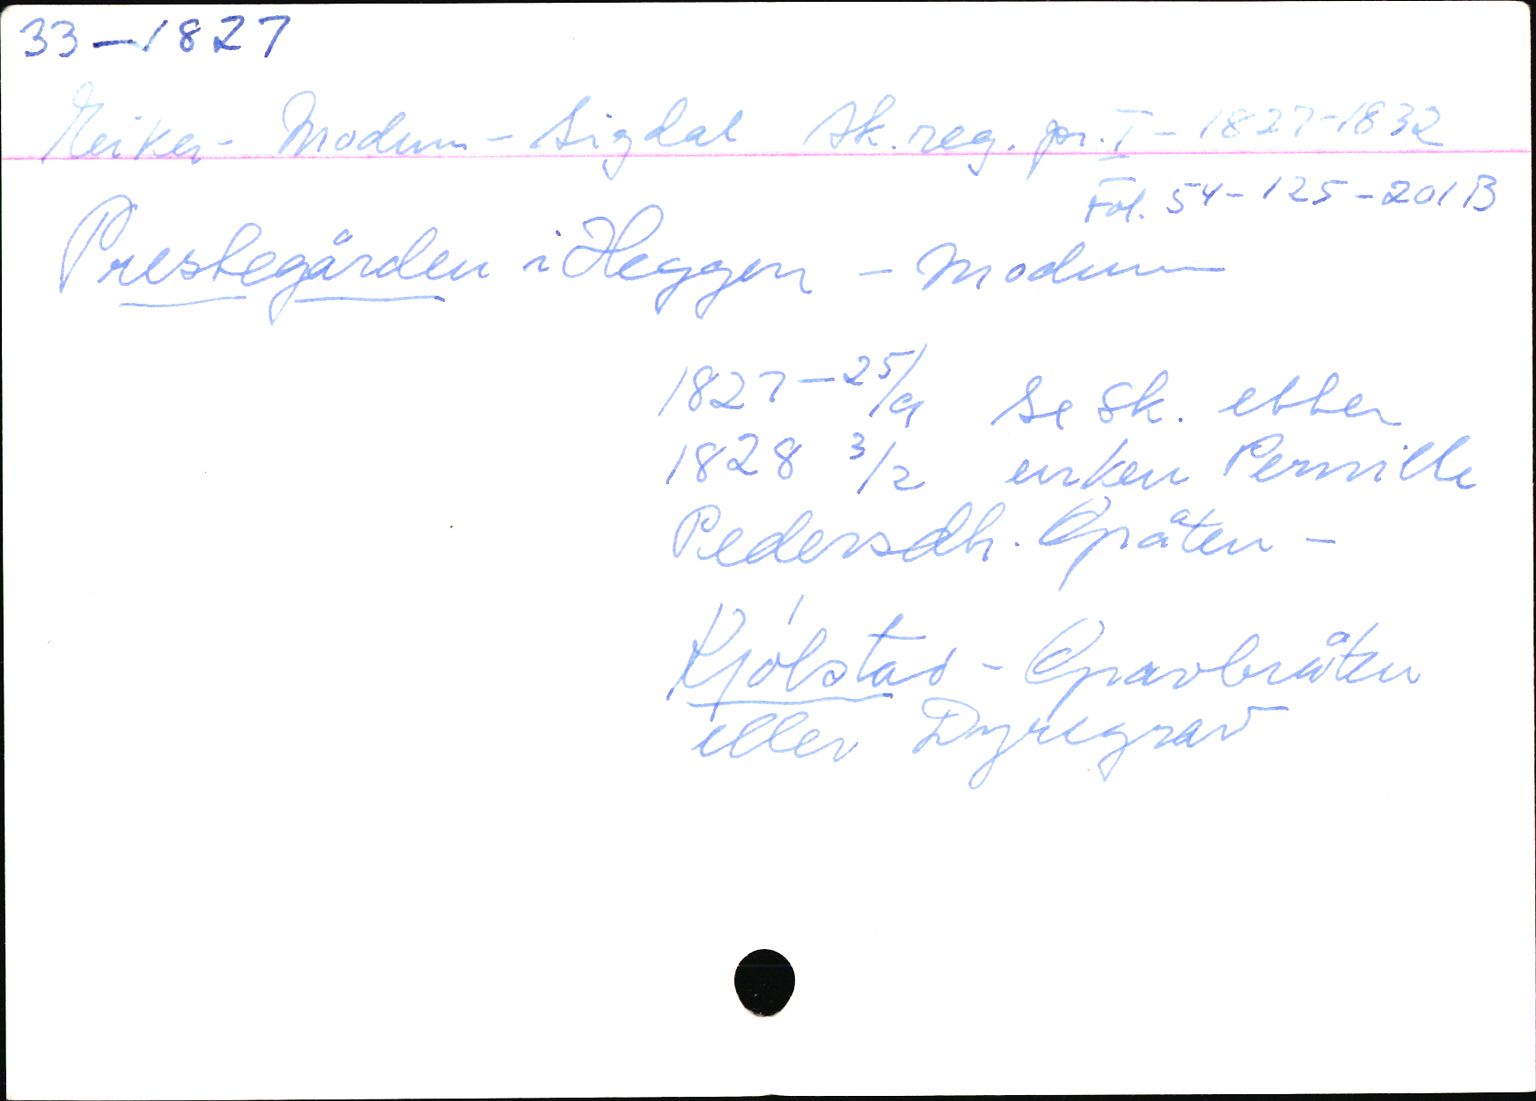 33-1827
Eiker - Modum - Sigdal Sk.reg. pr. I - 1827-1832
Fol. 54-125-201B
Prestegården i Heggen - Modum
1827 - 25/9 Se Sk. etter
1828 3/2 enken Pernille
Pedersdh. Gråten -
Kjølstad - Gravbråten
eller Dyregrav